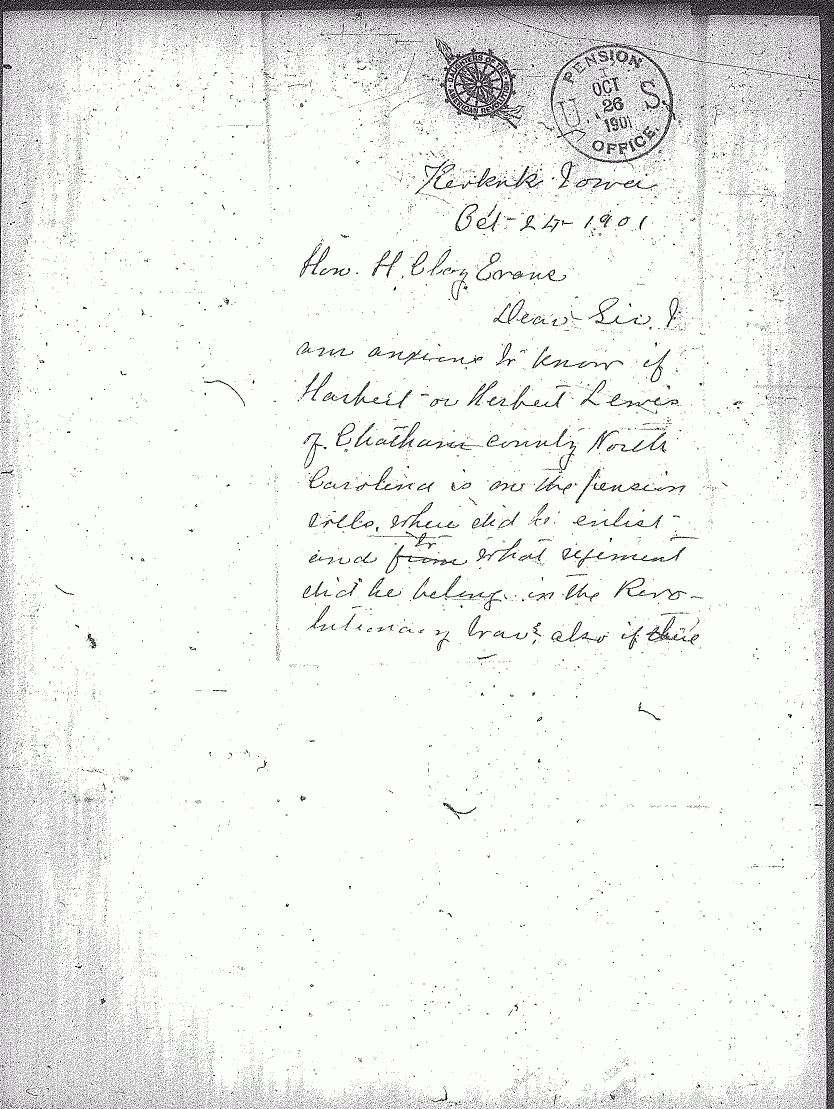 DAUGHTERS OF THE AMERICAN REVOLUTION
PENSION OFFICE
U. S.
OCT
26
1901
Keokuk Iowa
Oct- 24- 1901
Hon. H. Clay Evans
Dear Sir. I
am anxious to know if
Harbert or Herbert Lewis
of Chatham county North
Carolina is on the pension
rolls. where did he enlist
and from to what regiment
did he belong in the Revo-
lutionary War? also if